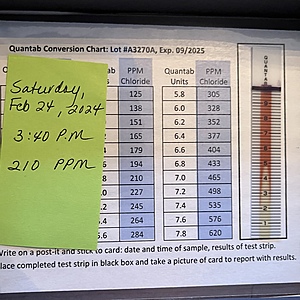 Quantab Conversion Chart: Lot #A3270A, Exp. 09/2025
PPM Chloride Quantab Units PPM Chloride
125 5.8 305
138 6.0 328
151 6.2 352
165 6.4 377
179 6.6 404
194 6.8 433
210 7.0 465
227 7.2 498
245 7.4 535
264 7.6 576
284 7.8 620
Saturday,
Feb 24, 2024
3:40 P.M
210 PPM
QUANTAB
Write on a post-it and stick to card: date and time of sample, results of test strip.
lace completed test strip in black box and take a picture of card to report with results.